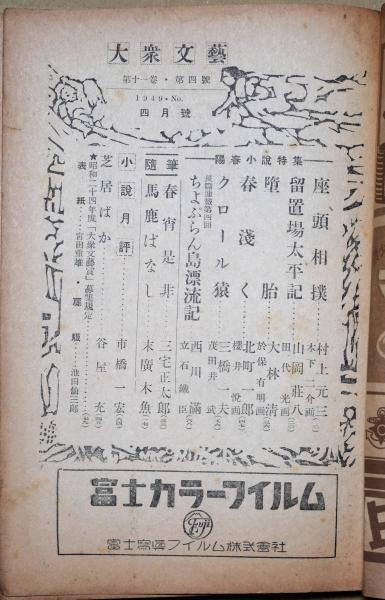 大衆文藝
第十一巻・第四號
1949・No.
四月號
陽春小說特集
座頭相撲 村上元三
木下二介画
留置場太平記 山岡莊八
田代光画
墮胎 大林清
於保有明画
春淺く 北町一郎
櫻井悅画
クロール猿 三橋一夫
茂田井武
長篇連載第四回
ちよぷらん島漂流記 西川滿
立石鐵臣
隨筆
春宵是非 三宅正太郎
馬鹿ばなし 末廣木魚
小說月評 市橋一宏
芝居ばか 谷屋充
★昭和二十四年度「大衆文藝賞」募集規定
表紙 宮田重雄・扉 池田仙三郎
富士カラーフイルム
Fuji
富士寫眞フイルム株式會社